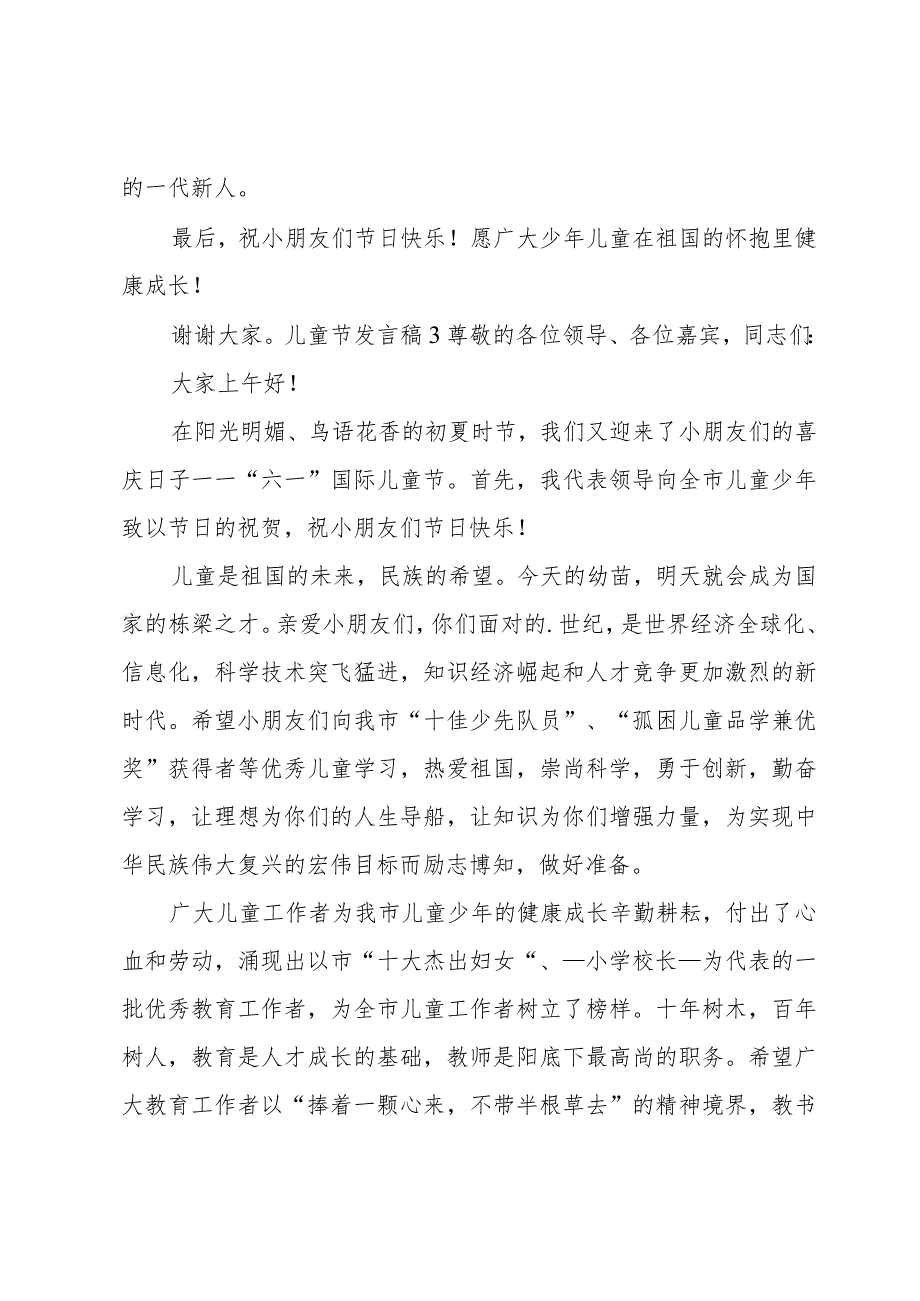 的一代新人。
最后，祝小朋友们节日快乐！愿广大少年儿童在祖国的怀抱里健
康成长！
谢谢大家。儿童节发言稿3尊敬的各位领导、各位嘉宾，同志们：
大家上午好！
在阳光明媚、鸟语花香的初夏时节，我们又迎来了小朋友们的喜
庆日子一一“六一”国际儿童节。首先，我代表领导向全市儿童少年
致以节日的祝贺，祝小朋友们节日快乐！
儿童是祖国的未来，民族的希望。今天的幼苗，明天就会成为国
家的栋梁之才。亲爱小朋友们，你们面对的.世纪，是世界经济全球化、
信息化，科学技术突飞猛进，知识经济崛起和人才竞争更加激烈的新
时代。希望小朋友们向我市“十佳少先队员”、“孤困儿童品学兼优
奖”获得者等优秀儿童学习，热爱祖国，崇尚科学，勇于创新，勤奋
学习，让理想为你们的人生导船，让知识为你们增强力量，为实现中
华民族伟大复兴的宏伟目标而励志博知，做好准备。
广大儿童工作者为我市儿童少年的健康成长辛勤耕耘，付出了心
血和劳动，涌现出以市“十大杰出妇女“、—小学校长—为代表的一
批优秀教育工作者，为全市儿童工作者树立了榜样。十年树木，百年
树人，教育是人才成长的基础，教师是阳底下最高尚的职务。希望广
大教育工作者以“捧着一颗心来，不带半根草去”的精神境界，教书